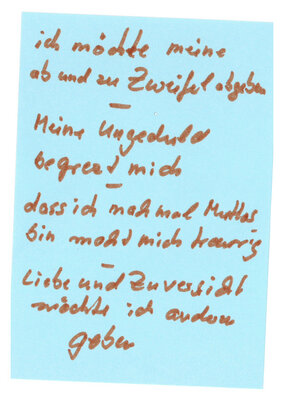 ich möchte meine
ab und zu Zweifel abgeben
–
Meine Ungeduld
begrenzt mich
–
dass ich machmal Mutlos
bin macht mich traurig
–
Liebe und Zuversicht
möchte ich anderen
geben